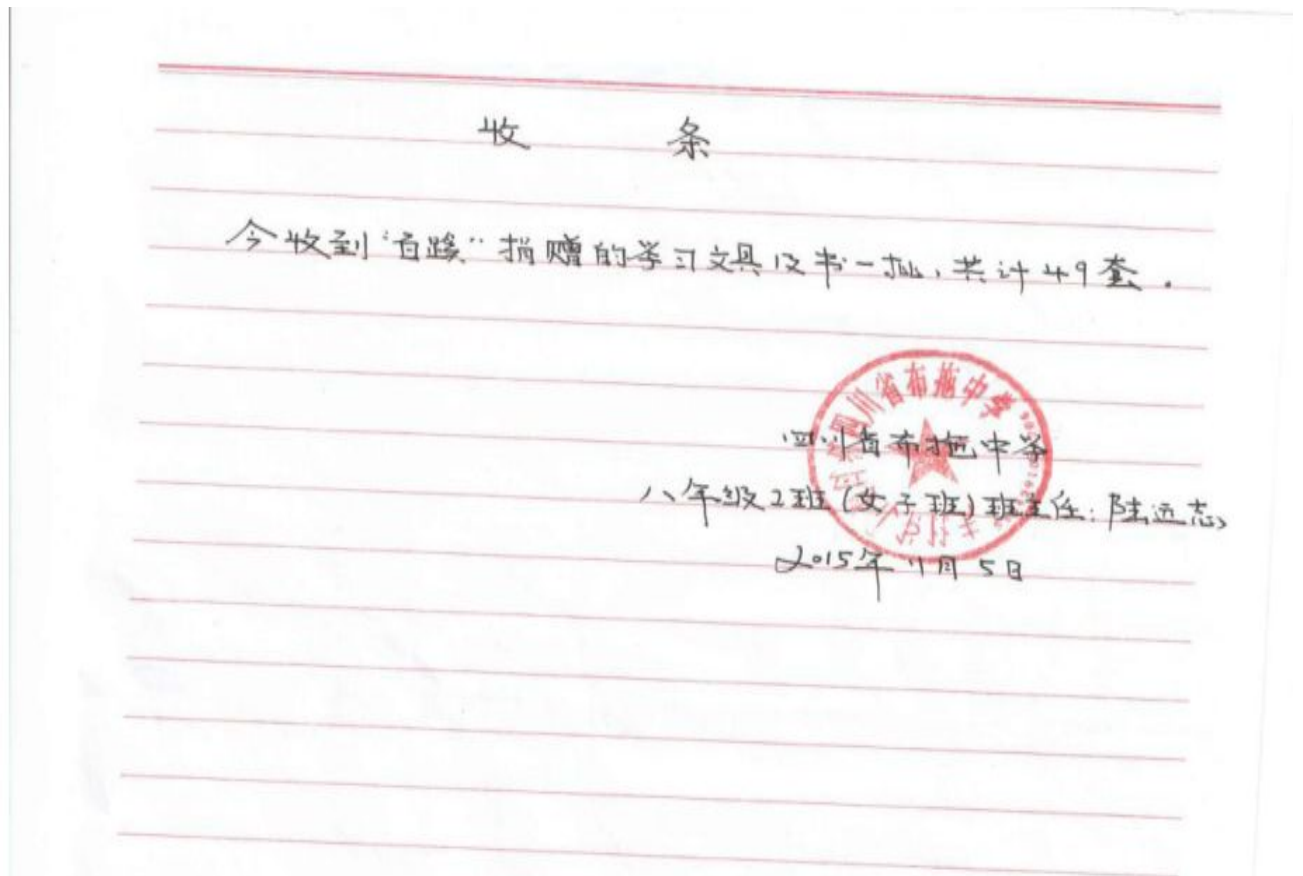 收 条
今收到“百蹊”捐赠的学习文具及书一批,共计49套.
四川省布拖中学
四川省布拖中学
八年级2班(女子班)班主任:陆远志
2015年11月5日